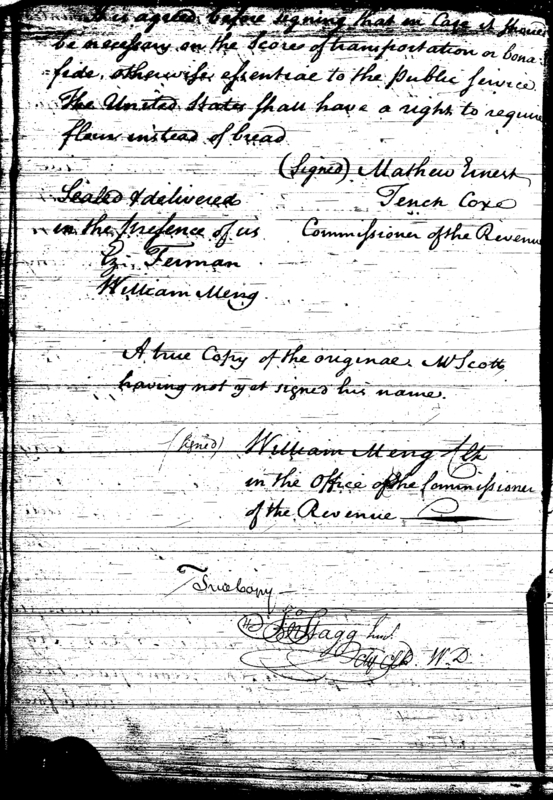 It is agreed before signing that in Case it should
be necessary on the Scores of transportation or bona
fide, otherwise essential to the public service
The United States shall have a right to require
flour instead of bread
(Signed) Mathew Ernest
Sealed & delivered Tench Coxe
in the presence of us Commissioner of the Revenue
Ez. Forman
William Meng
A true Copy of the original. Mr Scott
having not yet signed his name.
(signed) William Meng Clk
in the Office of the Commissioner
of the Revenue
True Copy
Jno Stagg Junr
Chf Clk W.D.